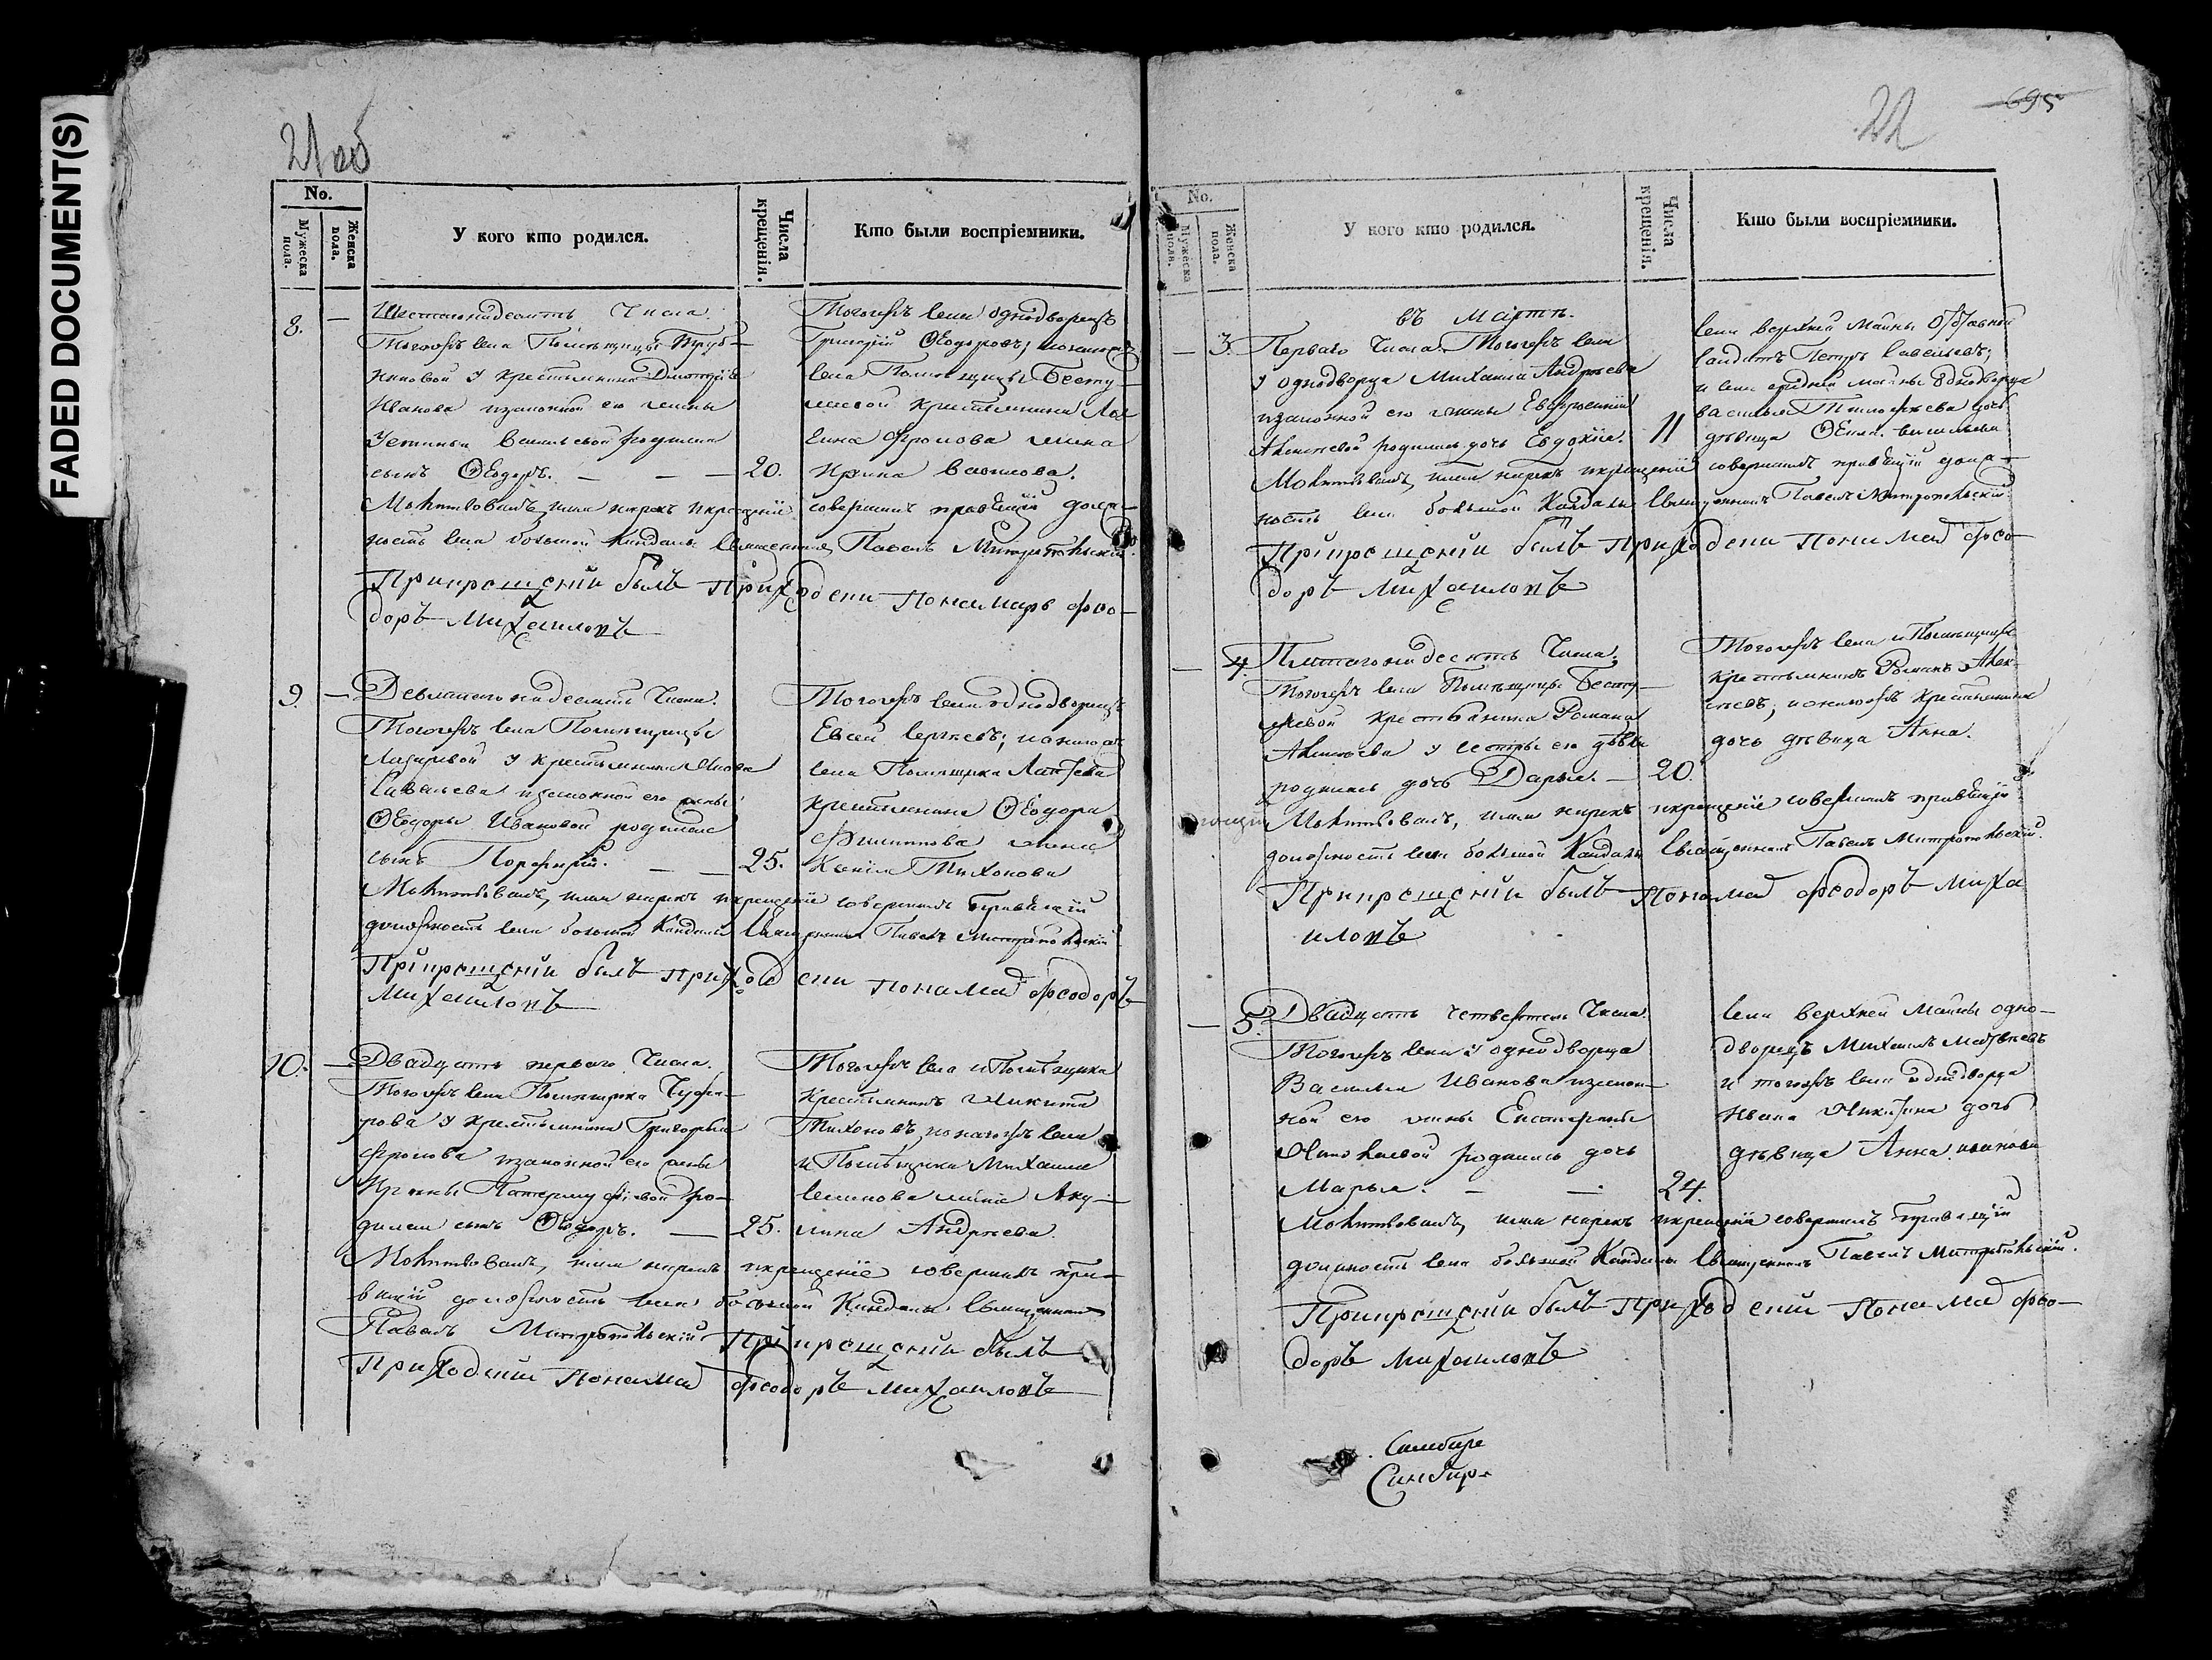 FADED DOCUMENT(S)
21 об
No.
Мужеска пола.
Женска пола.
У кого кто родился.
Числа крещенія.
Кто были воспріемники.
8. —
Шестагонадесять Числа
Тогожъ села Помѣщицы Труб-
никовой у крестьянина Дмитрія
Иванова изаконной его жены
Устиньи Васильевой родился
сынъ Ѳеодоръ. — — — 20.
Тогожъ села однодворецъ
Григорій Ѳеодоровъ;
села Помѣщицы Бесту-
жевой крестьянина
Фролова жена
Ирина
Молитвовалъ, имя нарекъ икрещеніе совершилъ правящій долж-
ность села большой Кандалы священникъ Павелъ Митропольскій.
Прикрещеніи былъ приходскии Понамарь Фео-
доръ Михаиловъ
9. —
Девятагонадесять Числа.
Тогожъ села Помѣщицы
Лазаревой у крестьянина
Савельева изаконной его жены
Ѳеодоры Ивановой родился
сынъ Порфирій. — — 25.
Тогожъ села однодворецъ
Евсей Сергѣевъ;
села Помѣщика
крестьянина Ѳеодора
Филиппова жена
Ксенія Тихонова
Молитвовалъ, имя нарекъ икрещеніе совершилъ правящій
должность села большой Кандалы Священникъ Павелъ Митропольскій
Прикрещеніи былъ приходскии понамар Феодоръ
Михаиловъ
10. —
Двадцать перваго Числа.
Тогожъ села Помѣщика
у крестьянина Григорья
Фролова изаконной его жены
Ирины ро-
дился сынъ Ѳеодоръ. — 25.
Тогожъ села иПомѣщика
Крестьянинъ Никита
Тихоновъ, села
иПомѣщика Михаила
Семенова жена Аку-
лина Андреева.
Молитвовалъ, имя нарекъ икрещеніе совершилъ пра-
вящій должность села большой Кандалы священникъ
Павелъ Митропольскій. Прикрещеніи былъ
Приходскии Понамар Феодоръ Михаиловъ
22
695
No.
Мужеска пола.
Женска пола.
У кого кто родился.
Числа крещенія.
Кто были воспріемники.
въ Мартѣ.
— 3.
Перваго Числа. Тогожъ села
у однодворца Михаила Андреева
изаконной его жены Евфросиніи
Алексѣевой родилась дочь Евдокія. 11
села верхней Майны Отставной
солдатъ Петръ Савельевъ;
и села средней майны Однодворца
Василья Тимофеева дочь
дѣвица Васильева
Молитвовалъ, имя нарекъ икрещеніе совершилъ правящій долж-
ность села большой Кандалы Священникъ Павелъ Митропольскій
Прикрещеніи былъ приходскии понамар Фео-
доръ Михаиловъ
— 4.
Пятагонадесять Числа.
Тогожъ села Помѣщицы Бесту-
жевой крестьянина Романа
Алексѣева у сестры его дѣвки
родилась дочь Дарья. — 20.
Тогожъ села иПомѣщицы
крестьянинъ Романъ Алек-
сѣевъ; крестьянина
дочь дѣвица Анна.
Молитвовалъ, имя нарекъ икрещеніе совершилъ правящій
должность села большой Кандалы Священникъ Павелъ Митропольскій.
Прикрещеніи былъ Понамар Феодоръ Миха
иловъ
— 5.
Двадцать четвертаго Числа.
Тогожъ села у однодворца
Василья Иванова изакон-
ной его жены Екатерины
родилась дочь
Марья. — — 24.
села верхней Майны одно-
дворецъ Михаилъ Матвѣевъ
и тогожъ села однодворца
Ивана Никитина дочь
дѣвица Анна Иванова
Молитвовалъ, имя нарекъ икрещеніе совершилъ правящій
должность села большой Кандалы Священникъ Павелъ Митропольскій.
Прикрещеніи былъ приходскии Понамар Фео-
доръ Михаиловъ
Синбир